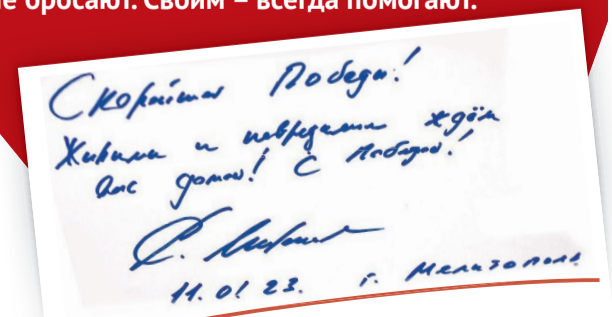 не бросают. Своим – всегда помогают.
Скорейшей Победы!
Живыми и невредимыми ждём
Вас дома! С Победой!
11.01.23. г. Мелитополь